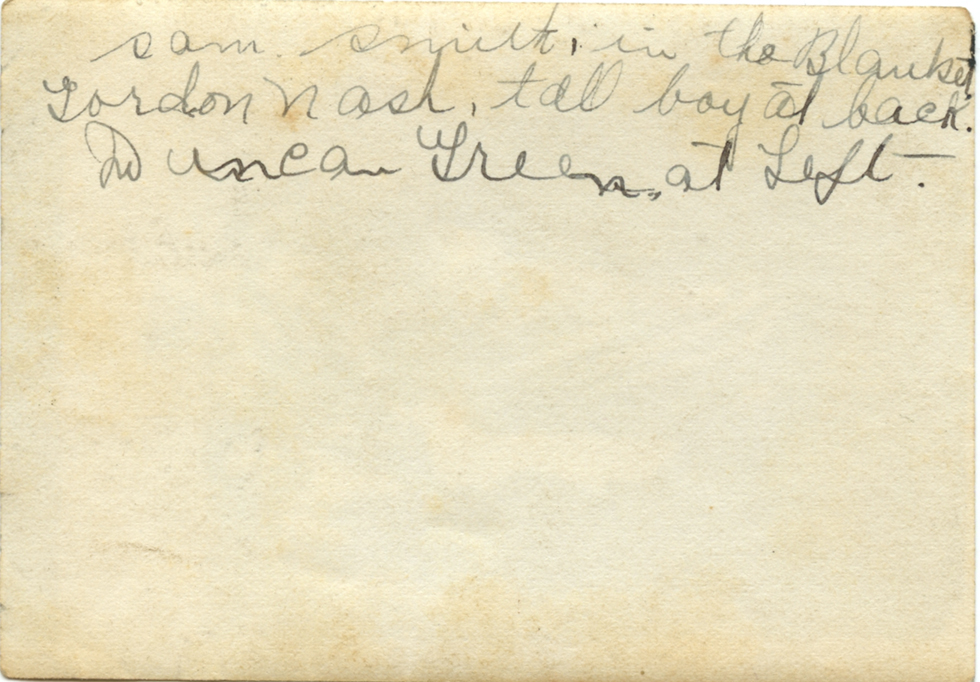 sam. smith, in the Blanket,
Gordon Nash, tall boy at back.
Duncan Green, at Left.